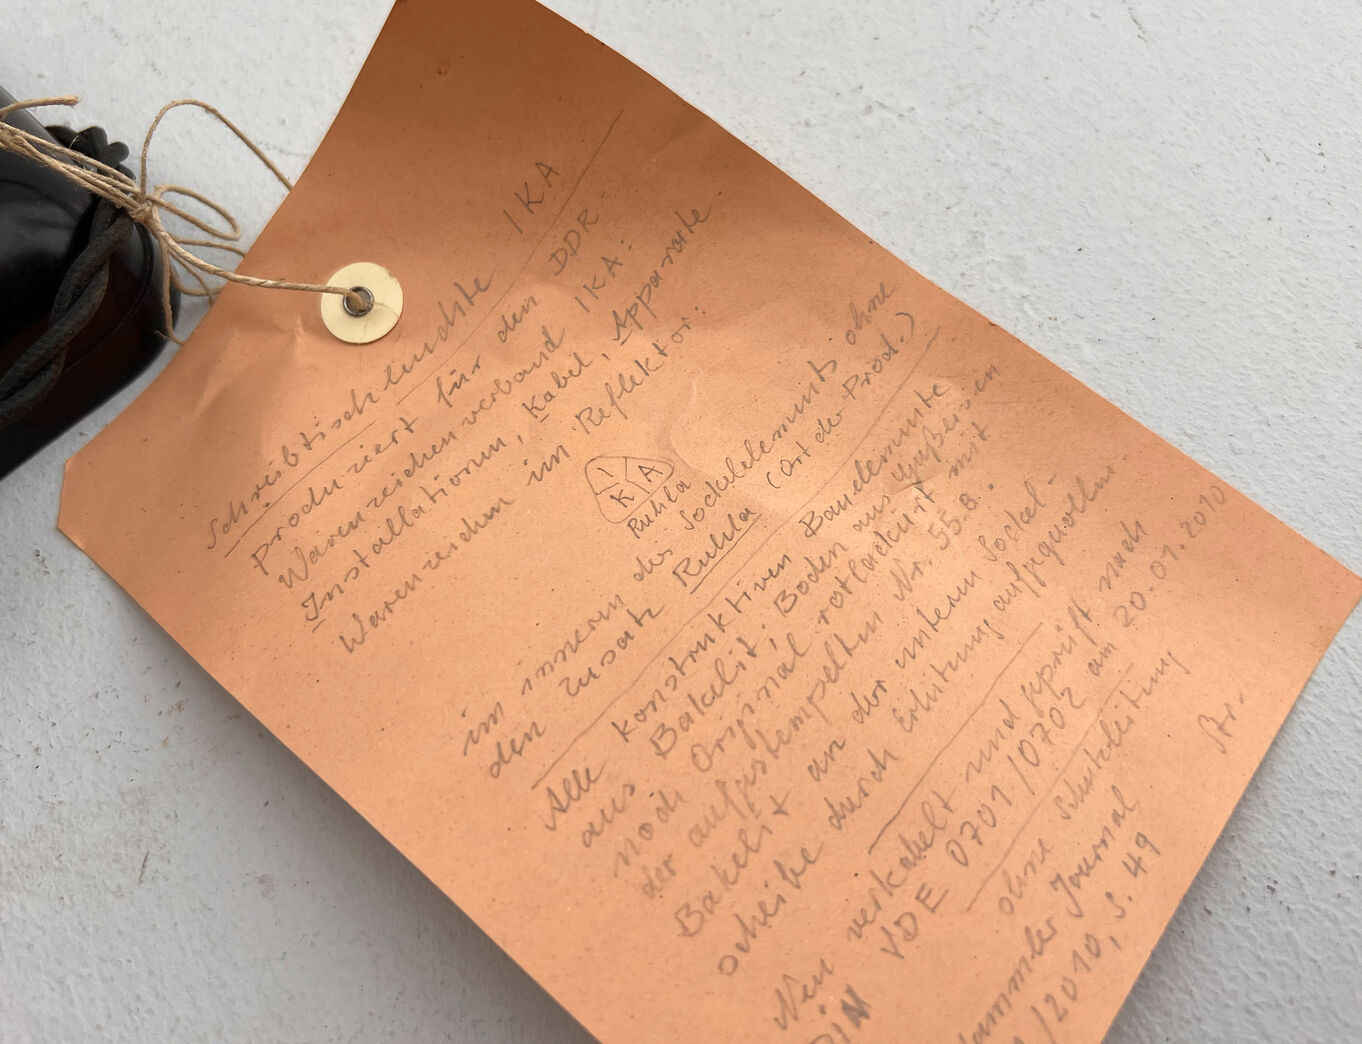 Schreibtischleuchte IKA
produziert für den DDR-
Warenzeichenverband IKA:
Installationen, Kabel, Apparate.
Warenzeichen im Reflektor:
I A
K
Ruhla
im innern des Sockelelements ohne
den Zusatz Ruhla (Ort der Prod.)
Alle konstruktiven Bauelemente
aus Bakelit; Boden aus Gußeisen
noch Original rotlackiert mit
der aufgestempelten Nr. 55.8.
Bakelit an der untern Sockel-
scheibe durch Erhitzung aufgequollen.
Neu verkabelt und geprüft nach
DIN VDE 0701/0702 am 20.01.2010
ohne Schutzleitung Str.
Sammler Journal
/2010, S. 49